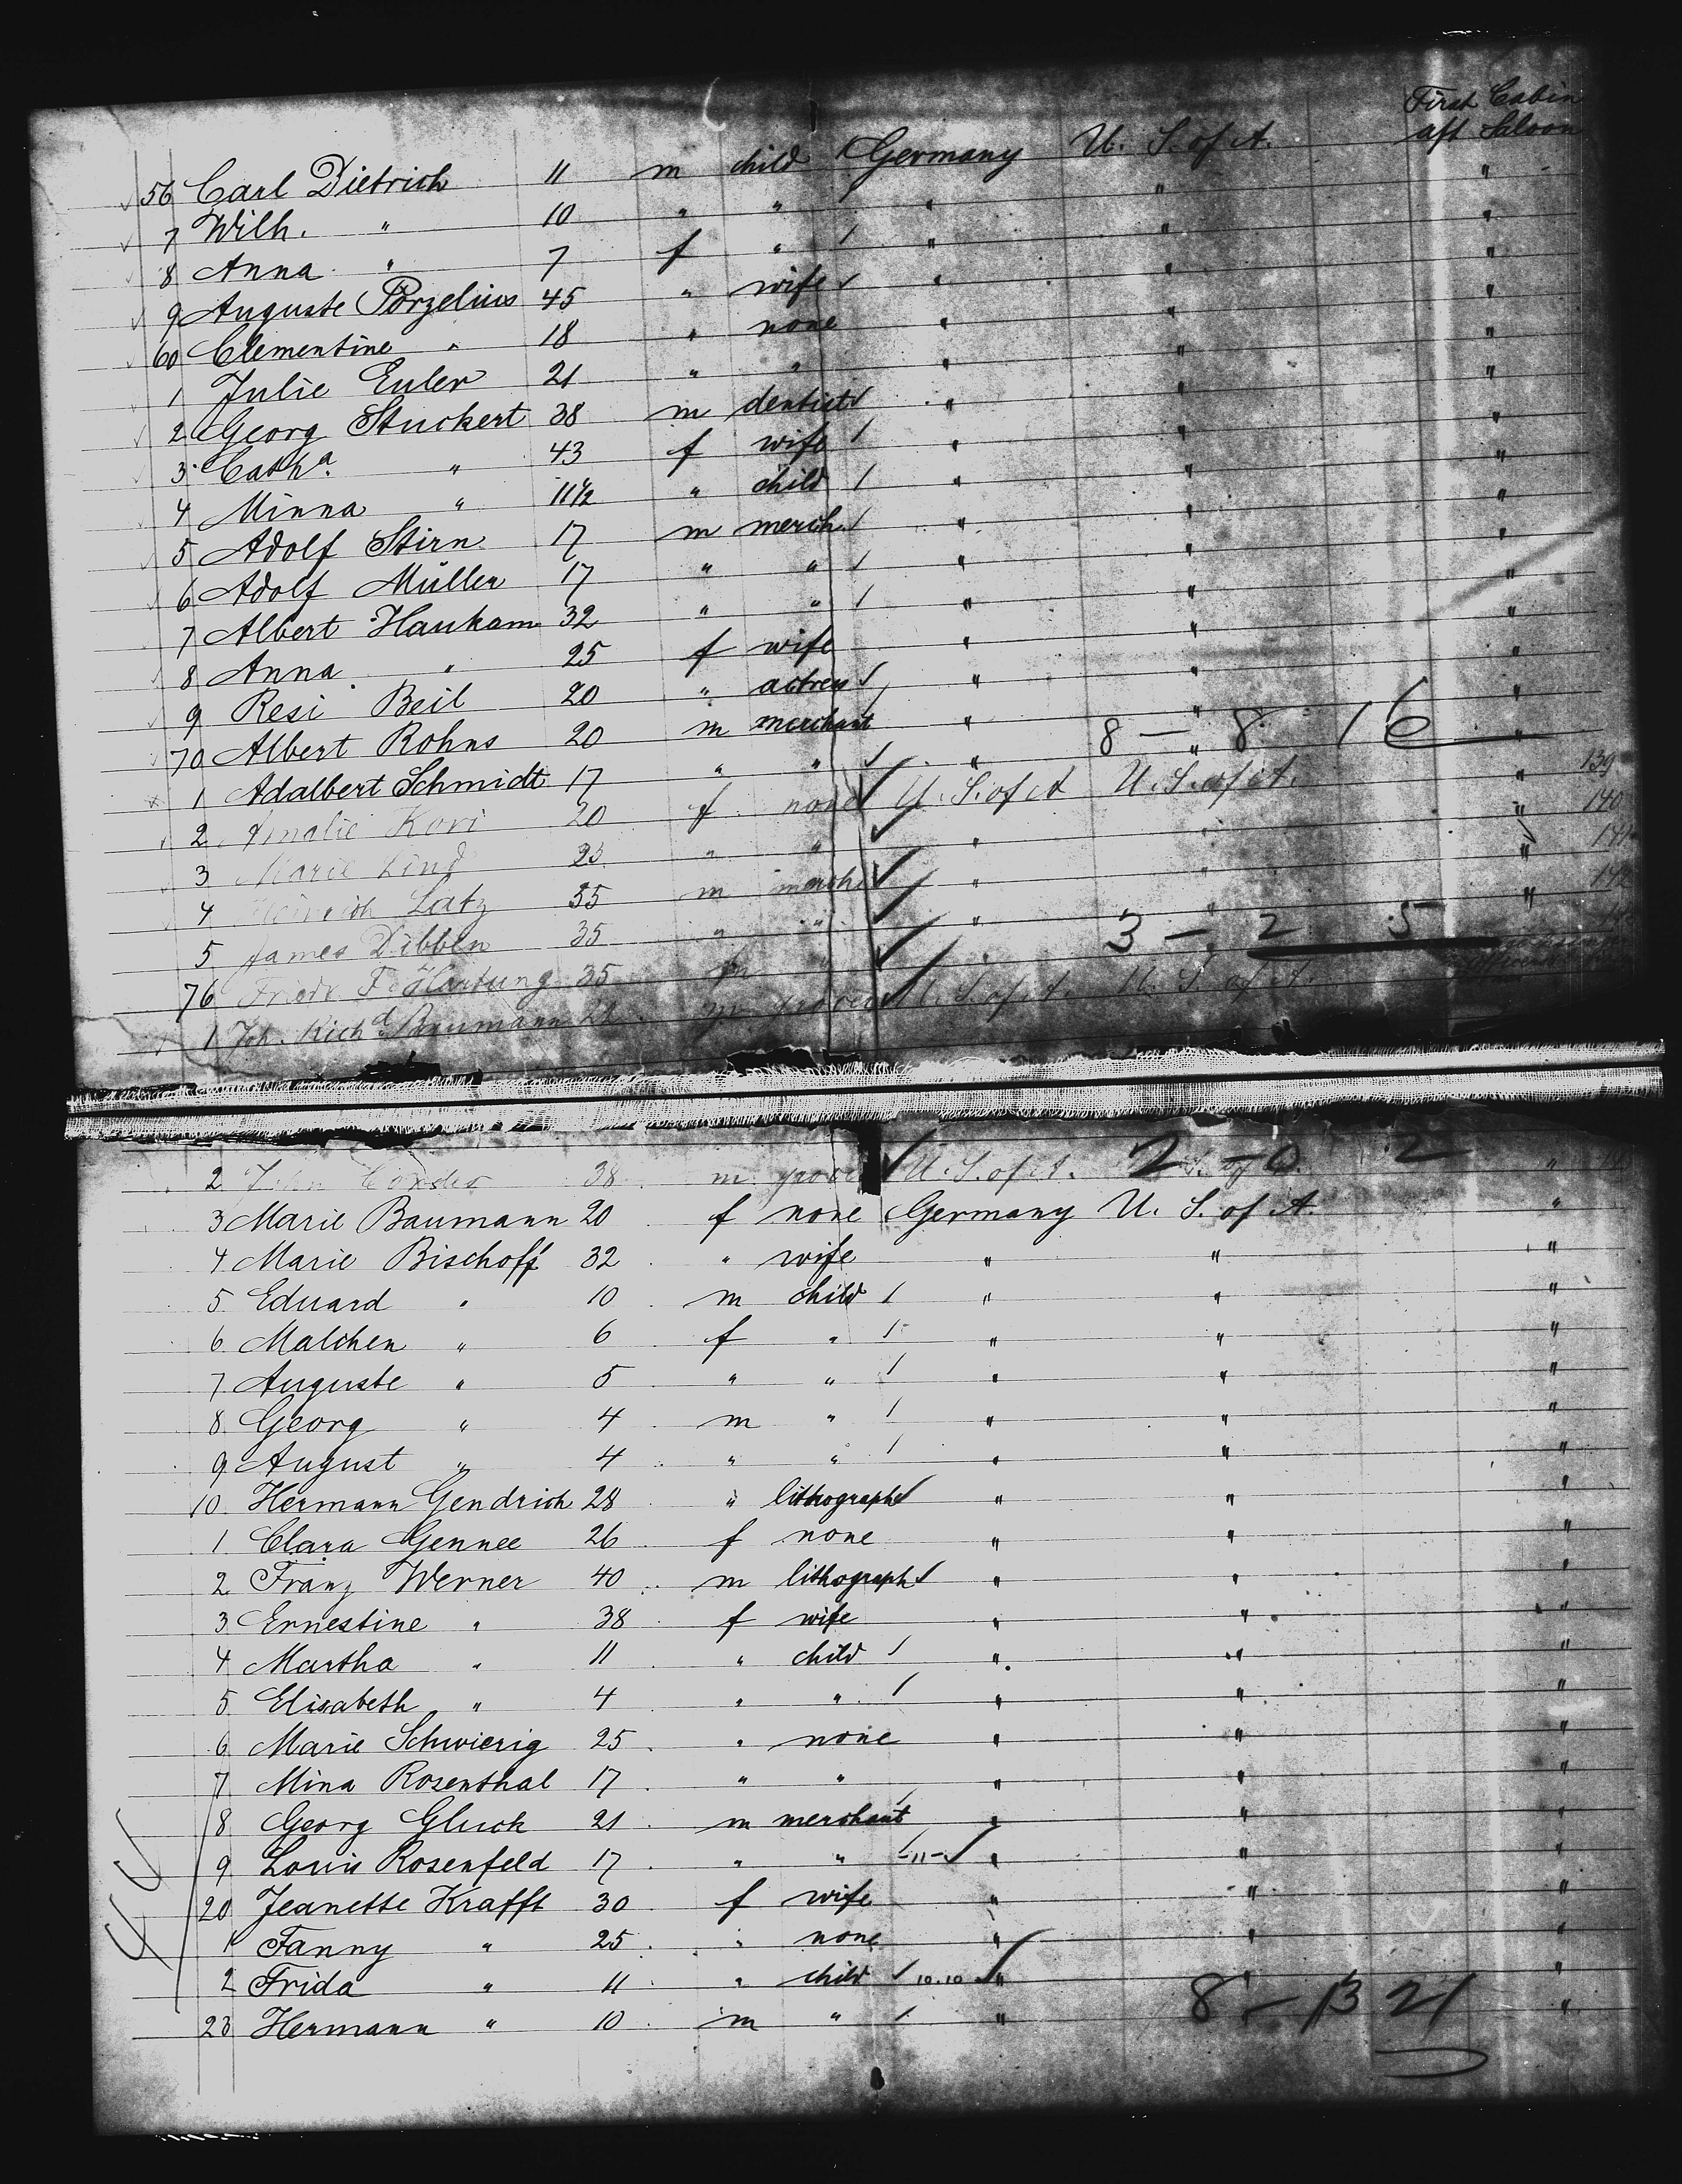 First Cabin
56 Carl Dietrich 11 m child Germany U. S. of A. aft Saloon
7 Wilh. " 10 " " " " "
8 Anna " 7 f " " " "
9 Auguste Porzelius 45 " wife " " "
60 Clementine " 18 " none " " "
1 Julie Euler 21 " " " " "
2 Georg Stuckert 38 m dentist " " "
3 Cath.a " 43 f wife " " "
4 Minna " 11 1/2 " child " " "
5 Adolf Stirn 17 m merch. " " "
6 Adolf Müller 17 " " " " "
7 Albert Haukam 32 " " " " "
8 Anna " 25 f wife " " "
9 Resi Beil 20 " actress " " "
70 Albert Rohns 20 m merchant " " "
8 — 8 16
1 Adalbert Schmidt 17 " " " " "
2 Amalie Kori 20 f none U. S. of A U. S. of A. " 139
3 Marie Lind 23 " " " " " 140
4 Heinrich Latz 35 m merch. " " " 141
5 James Dibbln 35 " " " " " 142
3 — 2 5
76 Friedr. Hartung 35 m "
1 Joh. Richd. Baumann 21 m grocer U. S. of A. U. S. of A.
2 John Cordes 38 m grocer U. S. of A. 2 — 0 2 "
3 Marie Baumann 20 f none Germany U. S. of A. "
4 Marie Bischoff 32 " wife " " "
5 Eduard " 10 m child " " "
6 Malchen " 6 f " " " "
7 Auguste " 5 " " " " "
8 Georg " 4 m " " " "
9 August " 4 " " " " "
10 Hermann Gendrich 28 " lithograph " " "
1 Clara Gennee 26 f none " " "
2 Franz Werner 40 m lithograph " " "
3 Ernestine " 38 f wife " " "
4 Martha " 11 " child " " "
5 Elisabeth " 4 " " " " "
6 Marie Schwierig 25 " none " " "
7 Mina Rosenthal 17 " " " " "
8 Georg Gluck 21 m merchant " " "
9 Louis Rosenfeld 17 " " -11- " " "
20 Jeanette Krafft 30 f wife " " "
1 Fanny " 25 " none " " "
2 Frida " 11 " child 10.10 " " "
23 Hermann " 10 m " " 8 — 13 21 "